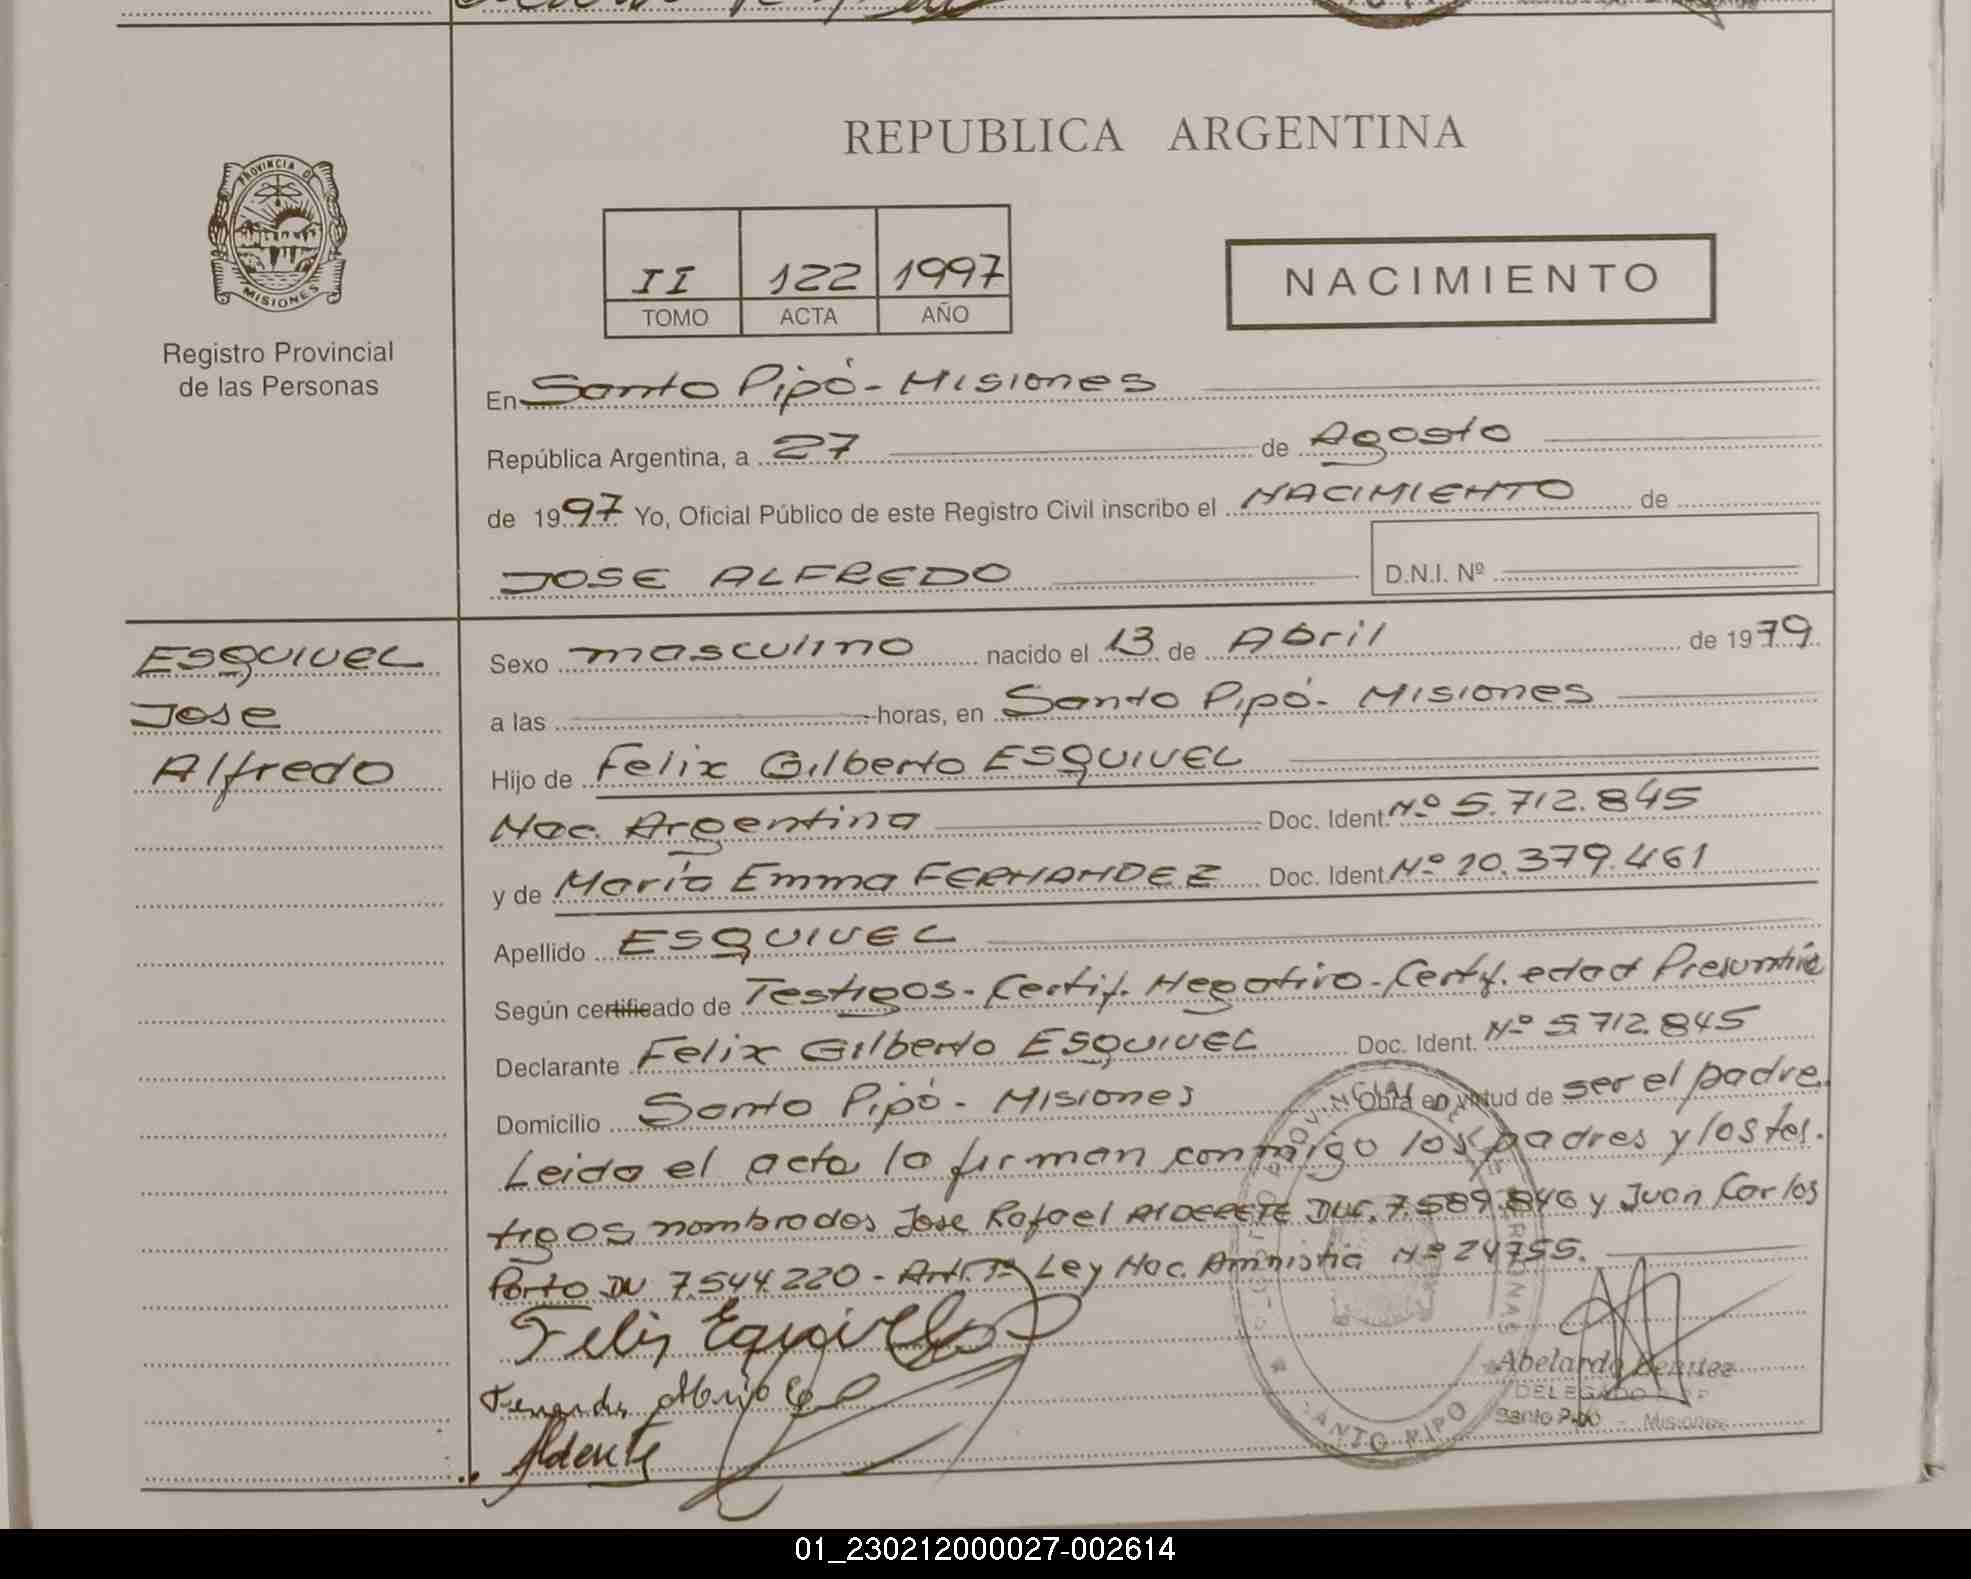 REPUBLICA ARGENTINA
PROVINCIA DE MISIONES
Registro Provincial
de las Personas
II 122 1997
TOMO ACTA AÑO
NACIMIENTO
En Santo Pipó - Misiones
República Argentina, a 27 de Agosto
de 1997 Yo, Oficial Público de este Registro Civil inscribo el NACIMIENTO de
JOSE ALFREDO D.N.I. Nº
ESQUIVEL
Jose
Alfredo
Sexo masculino nacido el 13 de Abril de 1979
a las horas, en Santo Pipó - Misiones
Hijo de Felix Gilberto ESQUIVEL
Nac. Argentina Doc. Ident. Nº 5.712.845
y de María Emma FERNANDEZ Doc. Ident. Nº 20.379.461
Apellido ESQUIVEL
Según certificado de Testigos - Certif. Negativo - Certif. edad Presuntiva
Declarante Felix Gilberto ESQUIVEL Doc. Ident. Nº 5.712.845
Domicilio Santo Pipó - Misiones Obra en virtud de ser el padre.
Leido el acta lo firman conmigo los padres y los tes.
tigos nombrados Jose Rafael AlDERETE 7.589.846 y Juan Carlos
Porto DU 7.544.220 - Art. 1º Ley Nac. Amnistia Nº 24755.
Abelardo Benitez
DELEGADO
Santo Pipó - Misiones
SANTO PIPO
01_230212000027-002614